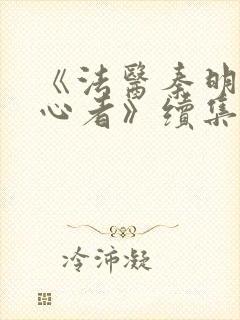 《法醫秦明
心者》續集
冷沛凝